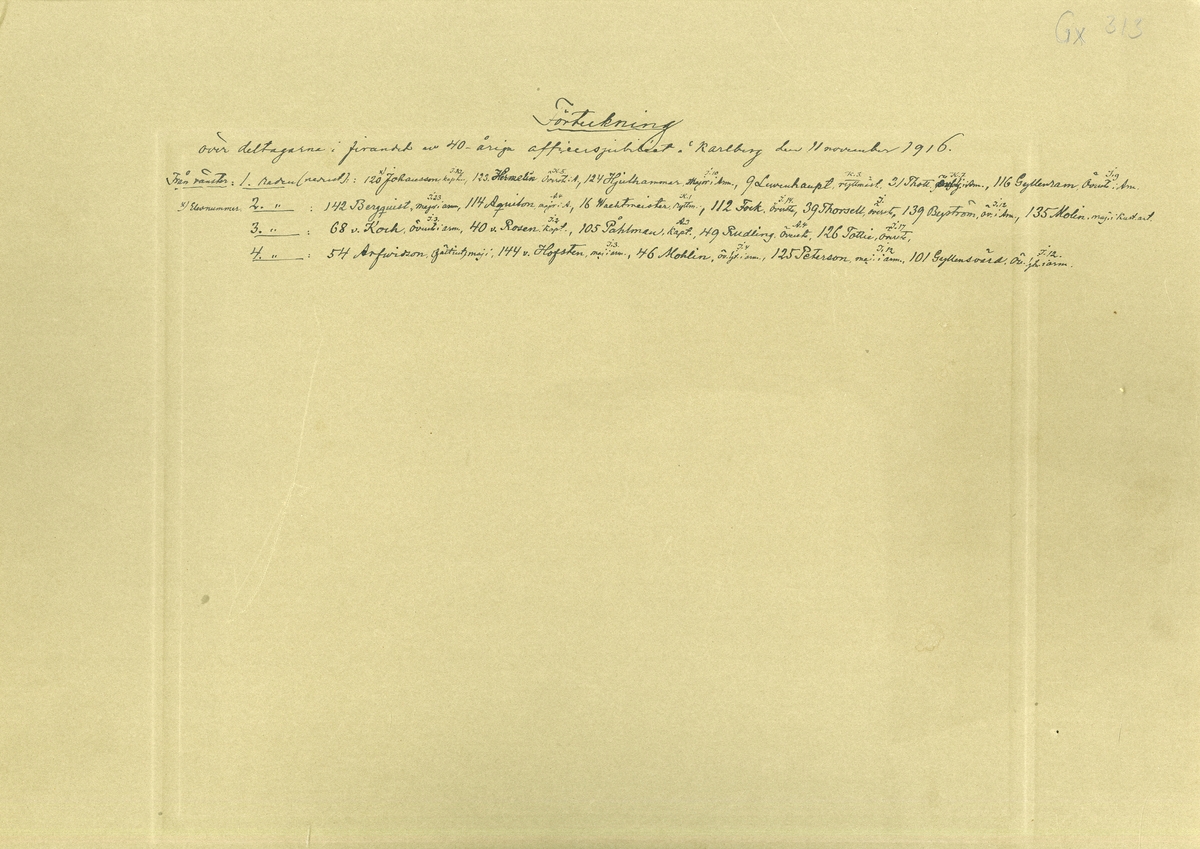 Gx 313
Förteckning
över deltagarne i firandet av 40-åriga officersjubileet å Karlberg den 11 november 1916.
Från vänster: 1. raden (nederst): 120 Johansson, kapt., 123. Hermelin Överst. i A, 124 Hjulhammar Major i Arm., 9 Lewenhaupt, ryttmäst. 31 Thott, i Arm., 116 Gyllenram Överstl. i Arm.
x) Elevnummer. 2. " : 142 Bergquist, major i arm, 114 Aquilon major i A, 16 Wachtmeister ryttm., 112 Fock, överste, 39 Thorsell, överste, 139 Byström, öv. i Arm, 135 Molin, maj. i kust art.
3. " : 68 v. Koch, Överstl. i arm, 40 v. Rosen, kapt., 105 Påhlman, kapt., 49 Rudling, Överstl., 126 Tottie, Överste,
4. " : 54 Arfwidson, maj., 144 v. Hofsten, maj. i arm., 46 Mohlin, öv. lt i arm., 125 Peterson maj. i arm., 101 Gyllensvärd, öv. lt i arm.